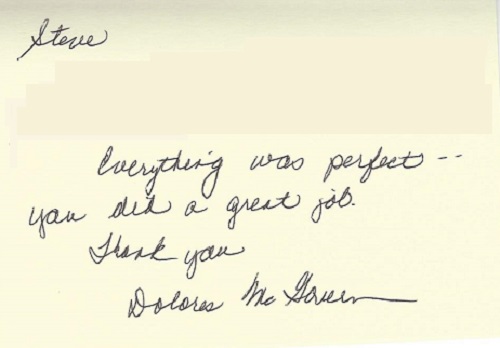 Steve
Everything was perfect --
you did a great job.
Thank you
Dolores McGovern